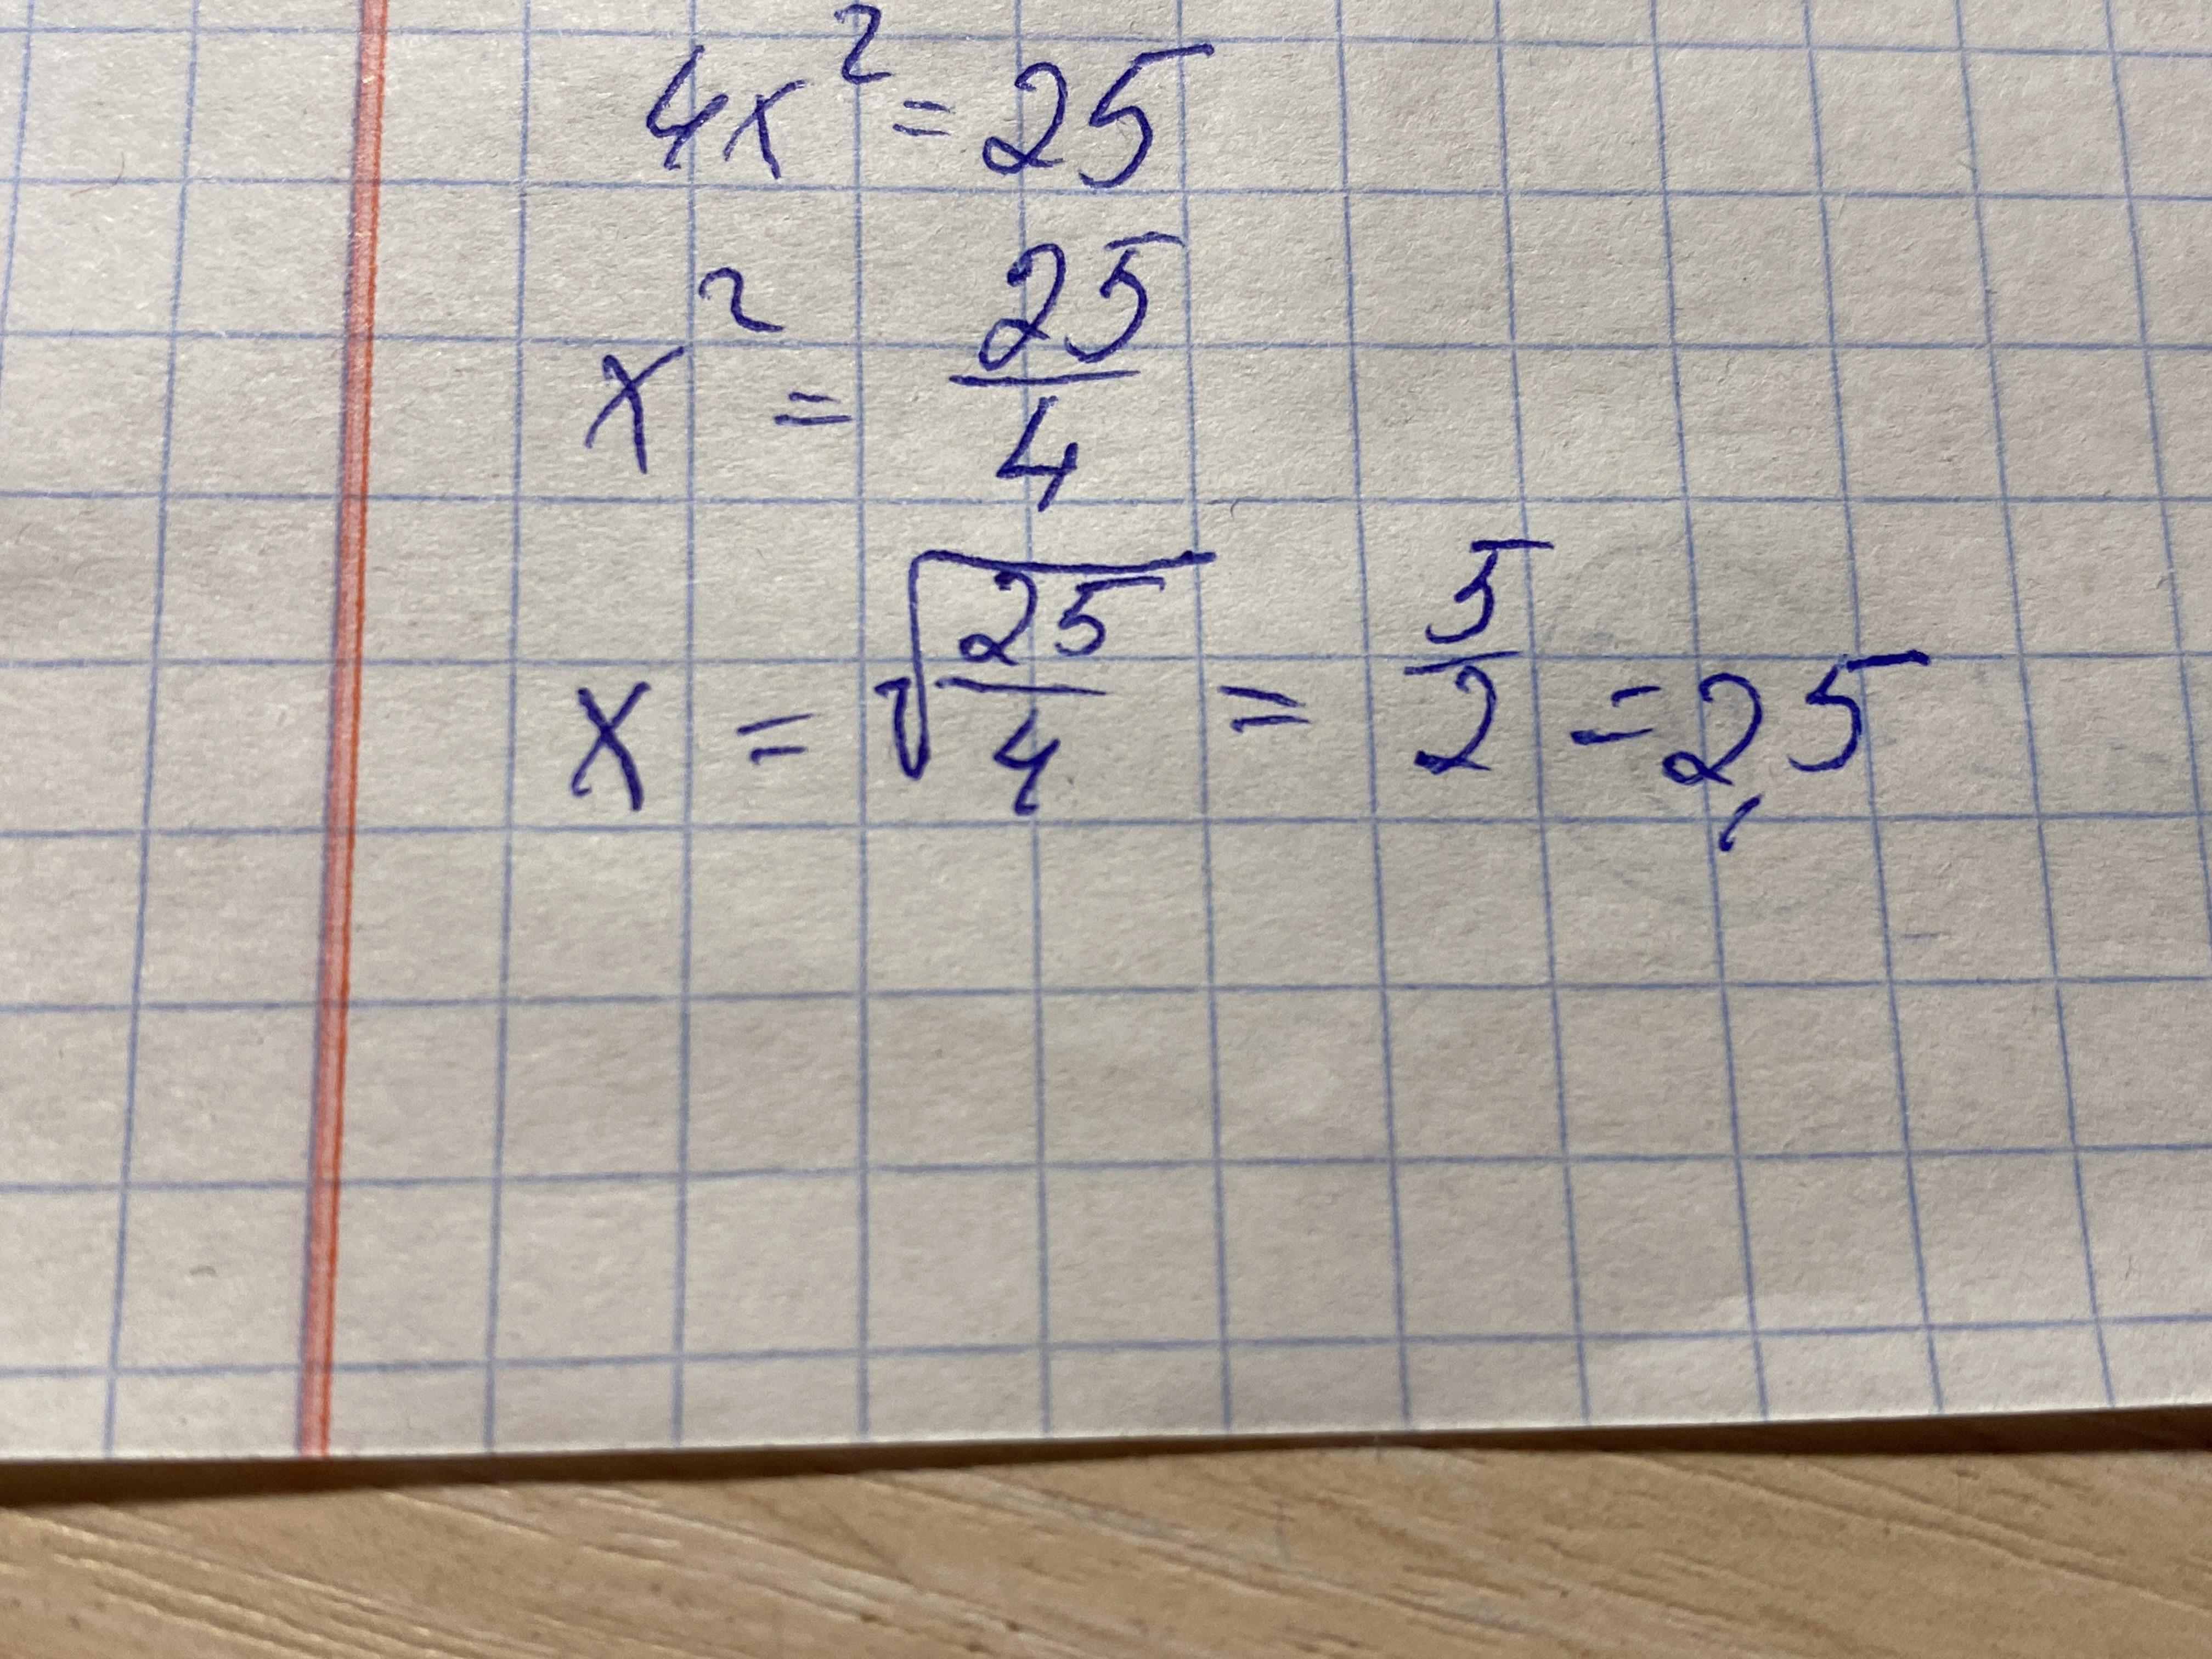 4x² = 25
x² = 25/4
x = √(25/4) = 5/2 = 2,5